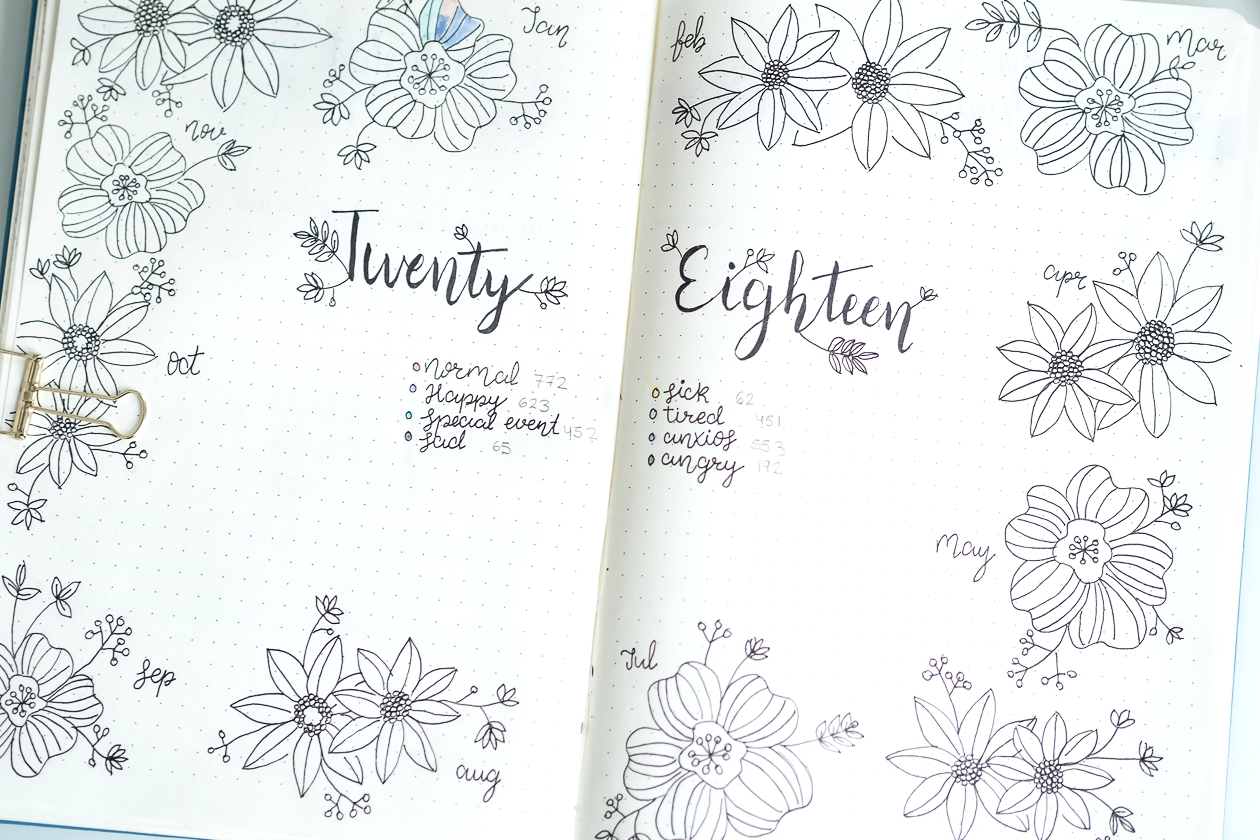 Jan
nov
Twenty
oct
normal 772
Happy 623
Special event 452
sad 65
sep
aug
feb
Mar
Eighteen
apr
sick 62
tired 451
anxios 553
angry 192
May
Jul